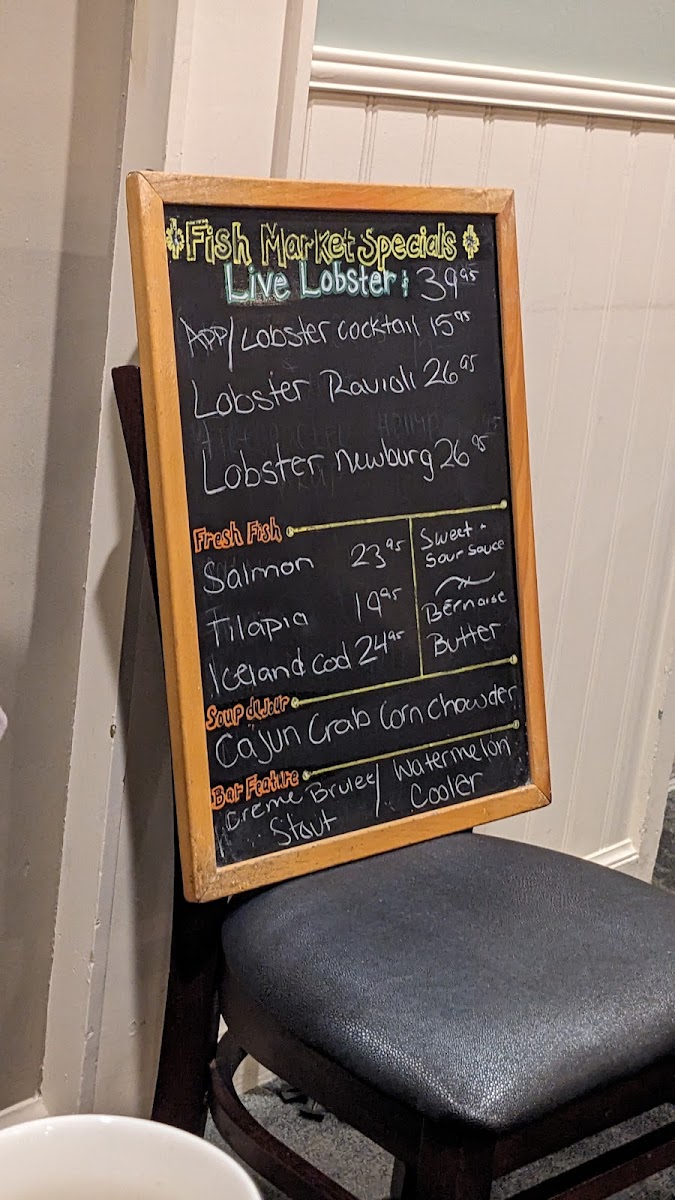 Fish Market Specials
Live Lobster; 39.95
App/Lobster cocktail 15.95
Lobster Ravioli 26.95
Lobster Newburg 26.95
Fresh Fish
Salmon 23.95
Tilapia 19.95
Iceland cod 24.95
Sweet +
Sour Sauce
Bernaise
Butter
Soup du Jour
Cajun Crab Corn Chowder
Bar Feature
Creme Brulee Stout / Watermelon Cooler